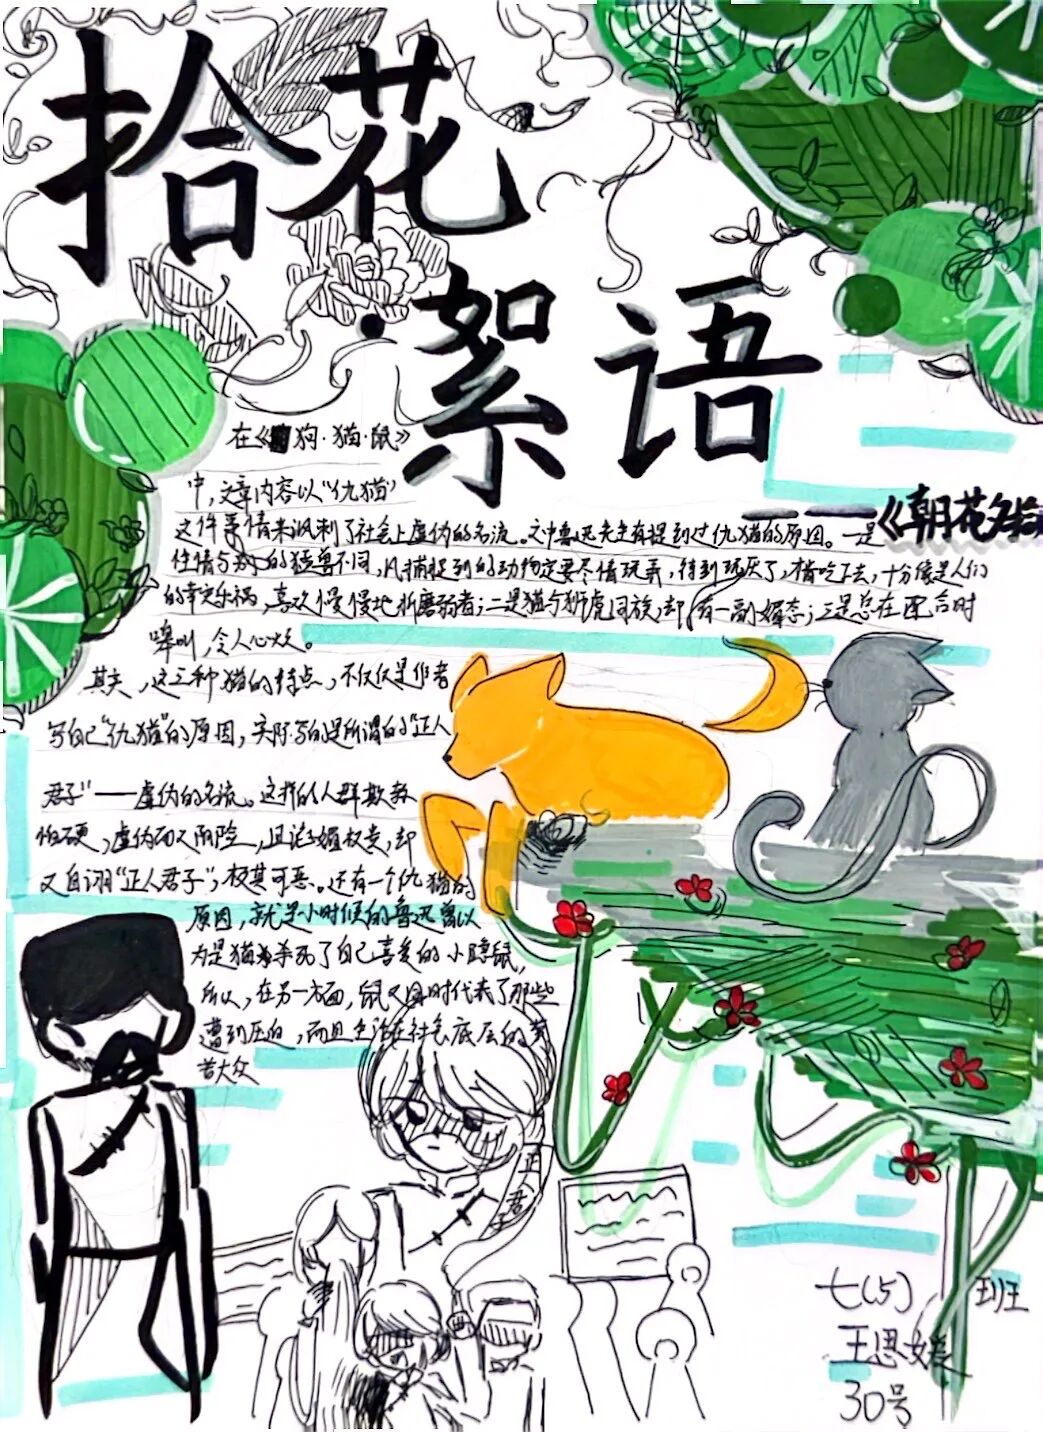 拾花
絮语
——《朝花夕拾》
在《狗·猫·鼠》
中，文章内容以“仇猫”
这件事情来讽刺了社会上虚伪的名流。文中鲁迅先生有提到过仇猫的原因。一是
性情与别的猛兽不同，凡捕捉到的动物定要尽情玩弄，待到玩厌了，才吃下去，十分像是人们
的幸灾乐祸，喜欢慢慢地折磨弱者；二是猫与狮虎同族，却有一副媚态；三是总在配合时
嗥叫，令人心烦。
其实，这三种猫的特点，不仅仅是作者
写自己“仇猫”的原因，实际写的是所谓的“正人
君子”——虚伪的名流。这样的人群欺软
怕硬，虚伪而又阴险，且谄媚权贵，却
又自诩“正人君子”，极其可恶。还有一个仇猫的
原因，就是小时候的鲁迅曾以
为是猫杀死了自己喜爱的小隐鼠，
所以，在另一方面，鼠又同时代表了那些
遭到压迫，而且生活在社会底层的劳
苦大众
正
君
子
七(5)班
王思媛
30号